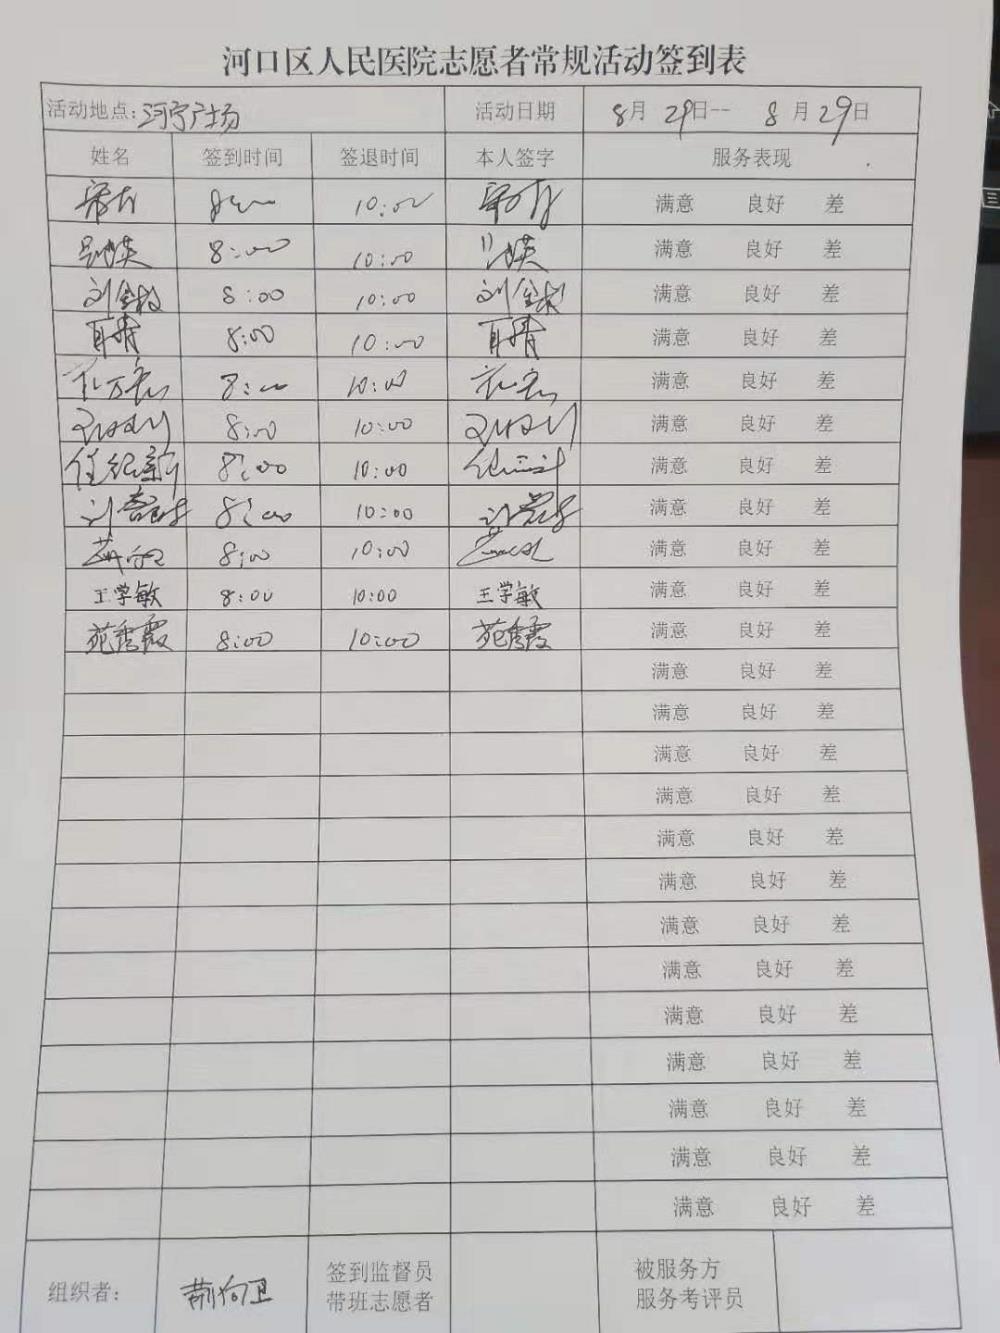 河口区人民医院志愿者常规活动签到表
活动地点:河宁广场 活动日期 8月29日--8月29日
姓名 签到时间 签退时间 本人签字 服务表现
10:00 满意 良好 差
8:00 10:00 满意 良好 差
刘金 8:00 10:00 刘金 满意 良好 差
8:00 10:00 满意 良好 差
8:00 10:00 满意 良好 差
8:00 10:00 满意 良好 差
任纪新 8:00 10:00 满意 良好 差
刘 8:00 10:00 刘 满意 良好 差
8:00 10:00 满意 良好 差
王学敏 8:00 10:00 王学敏 满意 良好 差
苑秀霞 8:00 10:00 苑秀霞 满意 良好 差
满意 良好 差
满意 良好 差
满意 良好 差
满意 良好 差
满意 良好 差
满意 良好 差
满意 良好 差
满意 良好 差
满意 良好 差
满意 良好 差
满意 良好 差
满意 良好 差
满意 良好 差
组织者: 荆向卫 签到监督员 被服务方
带班志愿者 服务考评员